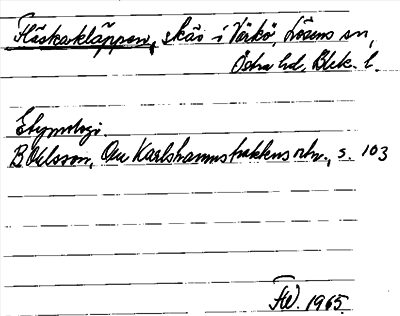 Fläskakläppen, skär i Verkö, Lösens sn,
Östra hd, Blek. l.
Etymologi
B Ohlsson, Om Karlshamnstraktens
s. 103
FW. 1965.